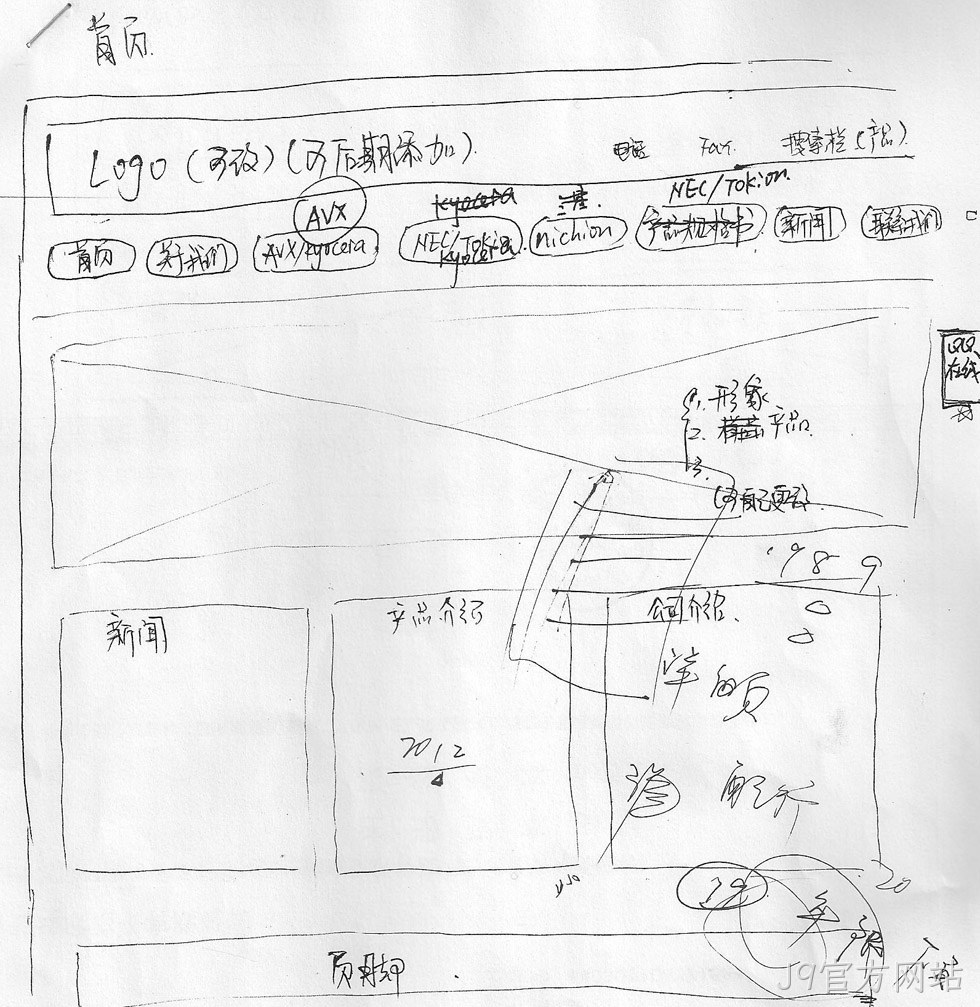 首页
Logo (可改) (可后期添加).
电话 Fax. 搜索栏 (产品)
AVX Kyocera NEC/Tokion.
首页 关于我们 AVX/Kyocera NEC/Tokin Kyocera nichion 产品规格书 新闻 联系我们
QQ
在线
1. 形象
2. 产品
3.
(可自己更改)
98 9
新闻 产品介绍 公司介绍.
单的页
2012
4
20
页脚
J9官方网站